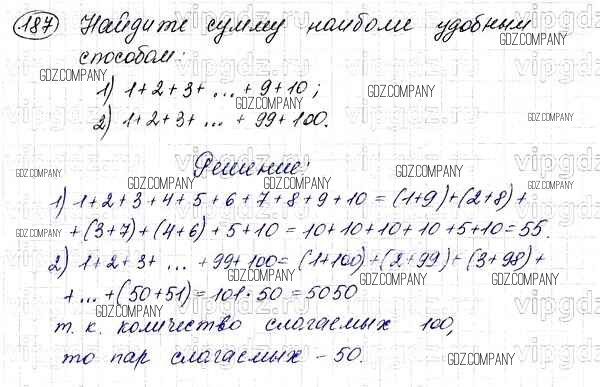 187 Найдите сумму наиболее удобным
способом:
1) 1+2+3+ ... +9+10;
2) 1+2+3+ ... + 99+100.
Решение:
1) 1+2+3+4+5+6+7+8+9+10 = (1+9)+(2+8)+
+(3+7)+(4+6)+5+10 = 10+10+10+10+5+10=55.
2) 1+2+3+ ... +99+100= (1+100)+(2+99)+(3+98)+
+...+(50+51)=101·50=5050
т. к. количество слагаемых 100,
то пар слагаемых - 50.